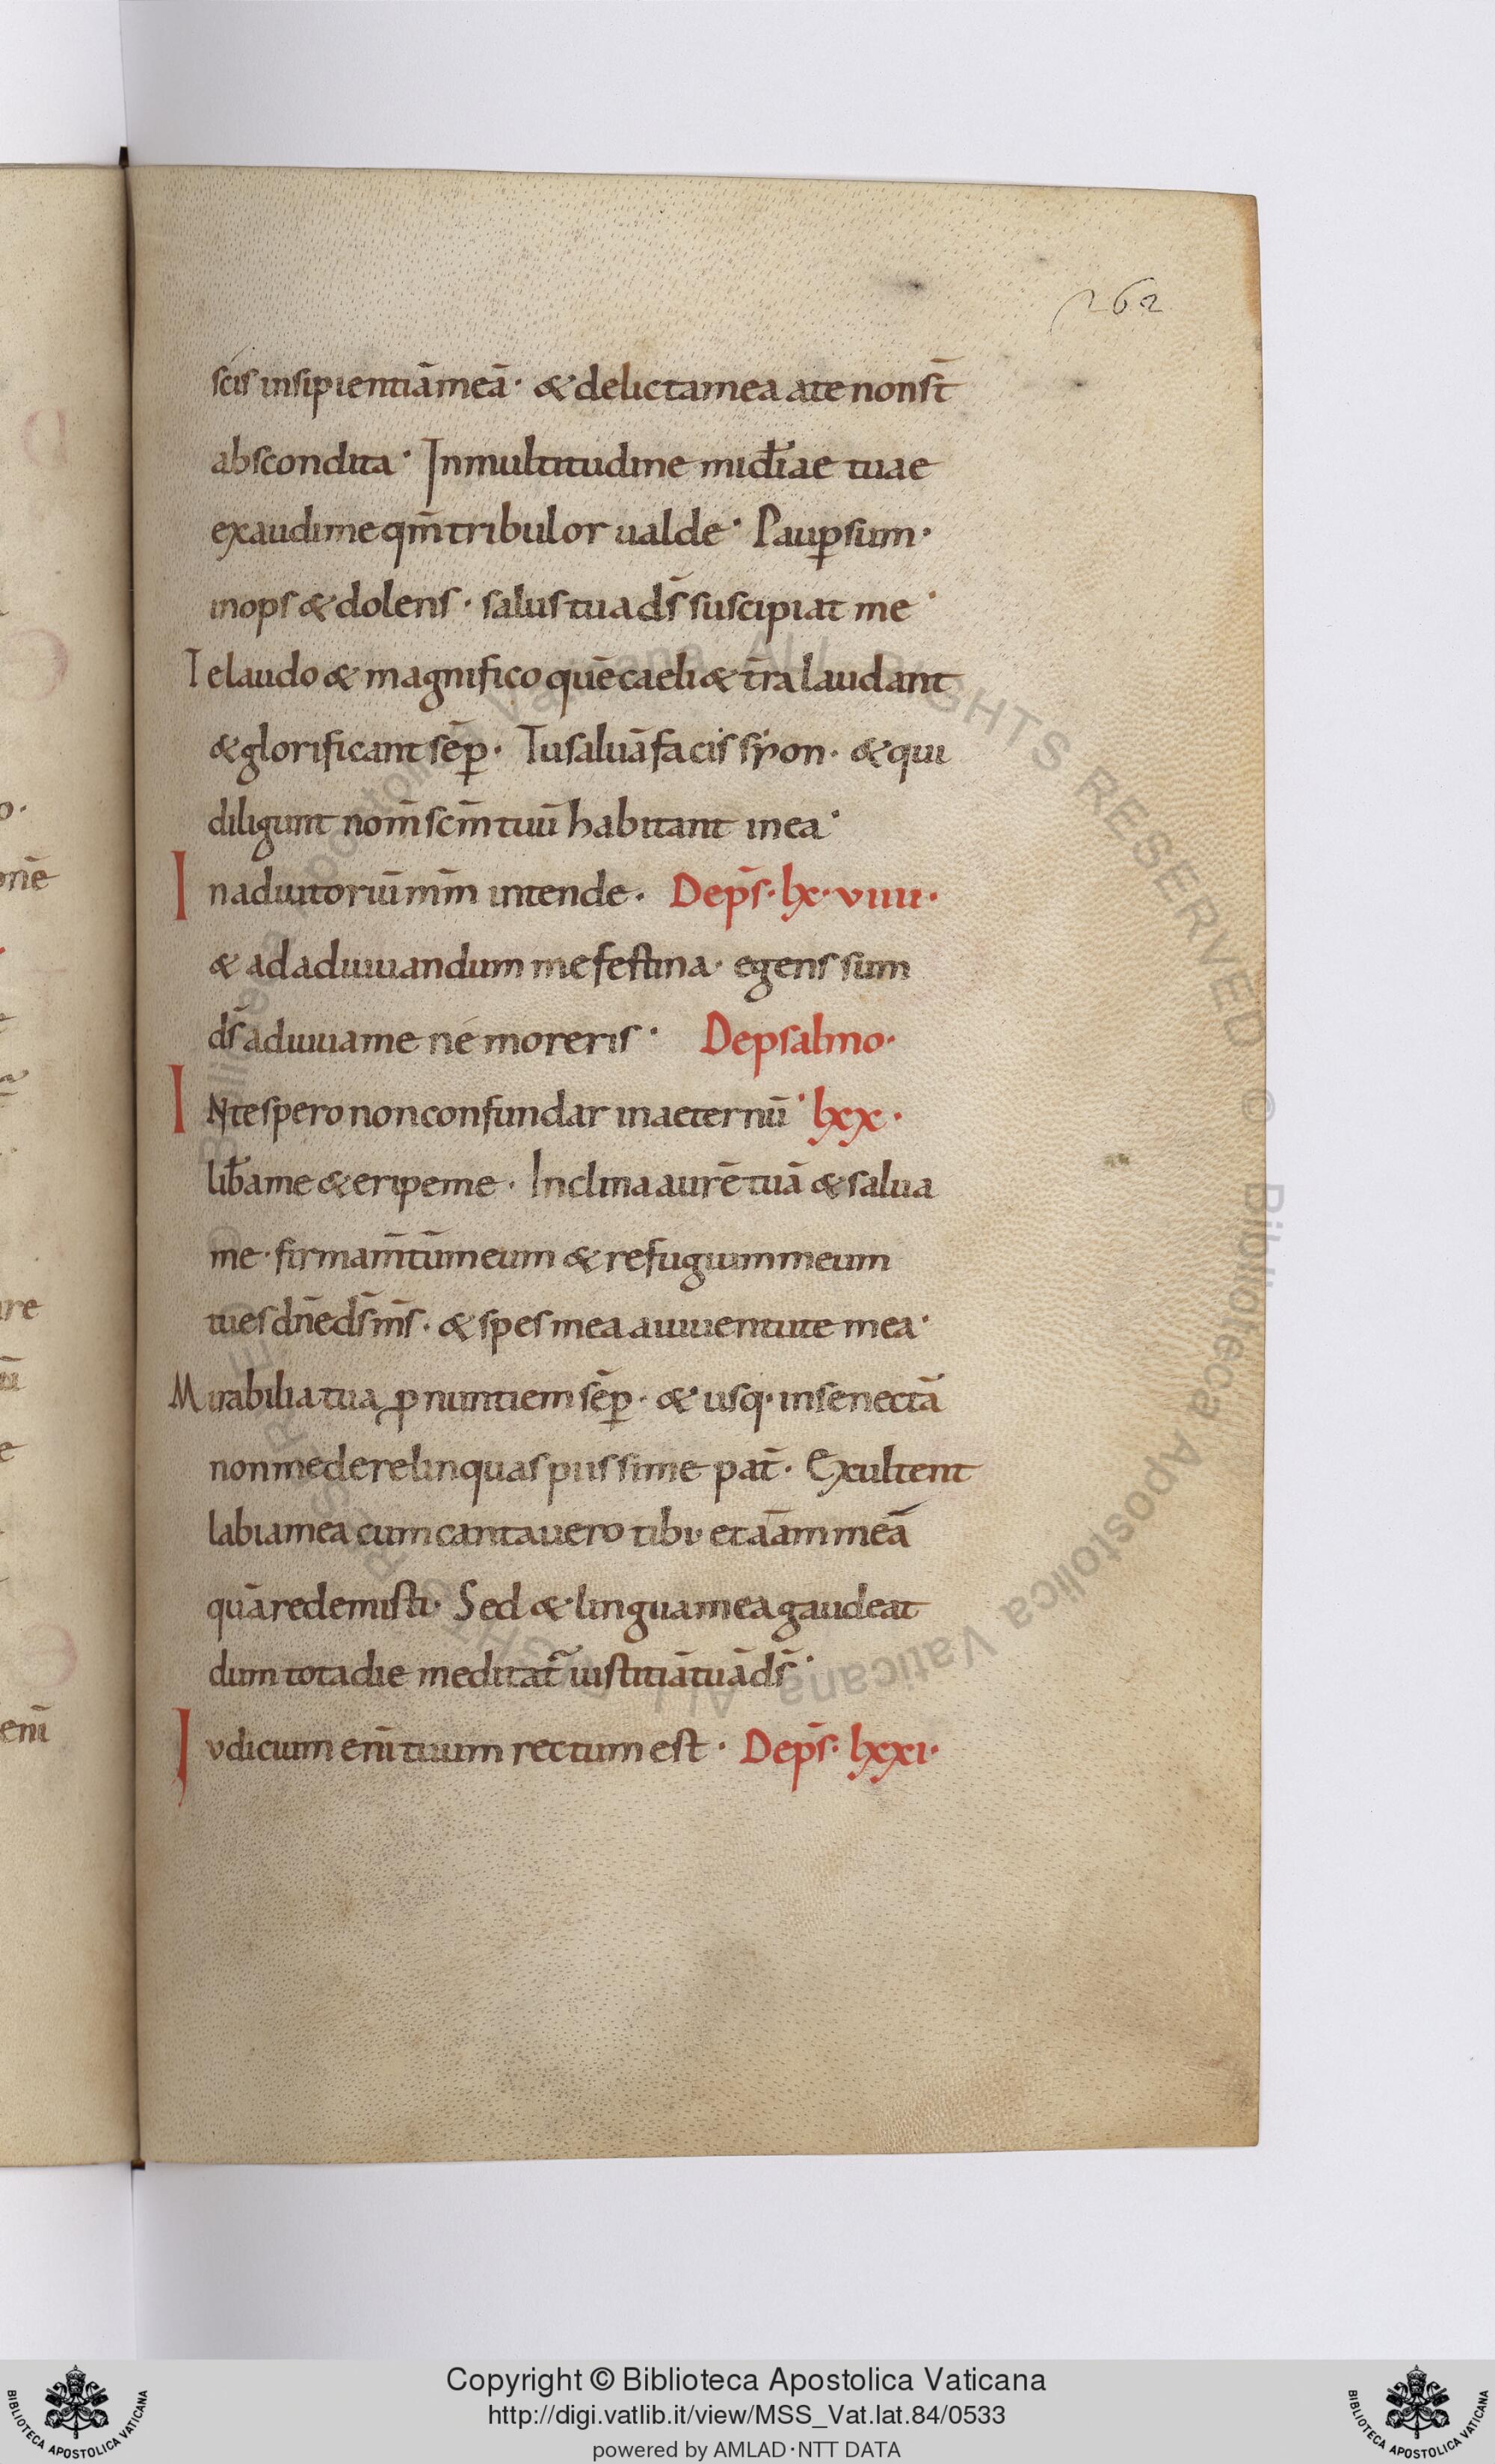 262
scis insipientiā meā · & delicta mea a te non st̄
abscondita · In multitudine mid̄iae tuae
exaudi me qm̄ tribulor ualde · Paup̱ sum ·
inops & dolens · salus tua ds̄ suscipiat me ·
Te laudo & magnifico quē caeli & tr̄a laudant
& glorificant sēp̱ · Tu saluā facis syon · & qui
diligunt nom̄ scm̄ tuū habitant in ea ·
In adiutoriū mm̄ intende · De ps̄ · lx · viiii ·
& ad adiuuandum me festina · egens sum
ds̄ adiuua me ne moreris · De psalmo ·
INte spero non confundar in aeternū · lxx ·
lib̄a me & eripe me · Inclina aurē tuā & salua
me · firmam̄tū meum & refugium meum
tu es dn̄e ds̄ ms̄ · & spes mea a iuuentute mea ·
Mirabilia tua ꝓnuntiem sēp̱ · & usq· in senectā
non me derelinquas piissime pat̄ · Exultent
labia mea cum cantauero tibi · et aām meā
quā redemisti · Sed & lingua mea gaudeat
dum tota die meditat̄ iustitiā tuā ds̄ ·
Iudicium enī tuum rectum est · De ps̄ · lxxi ·
Copyright © Biblioteca Apostolica Vaticana
http://digi.vatlib.it/view/MSS_Vat.lat.84/0533
powered by AMLAD·NTT DATA